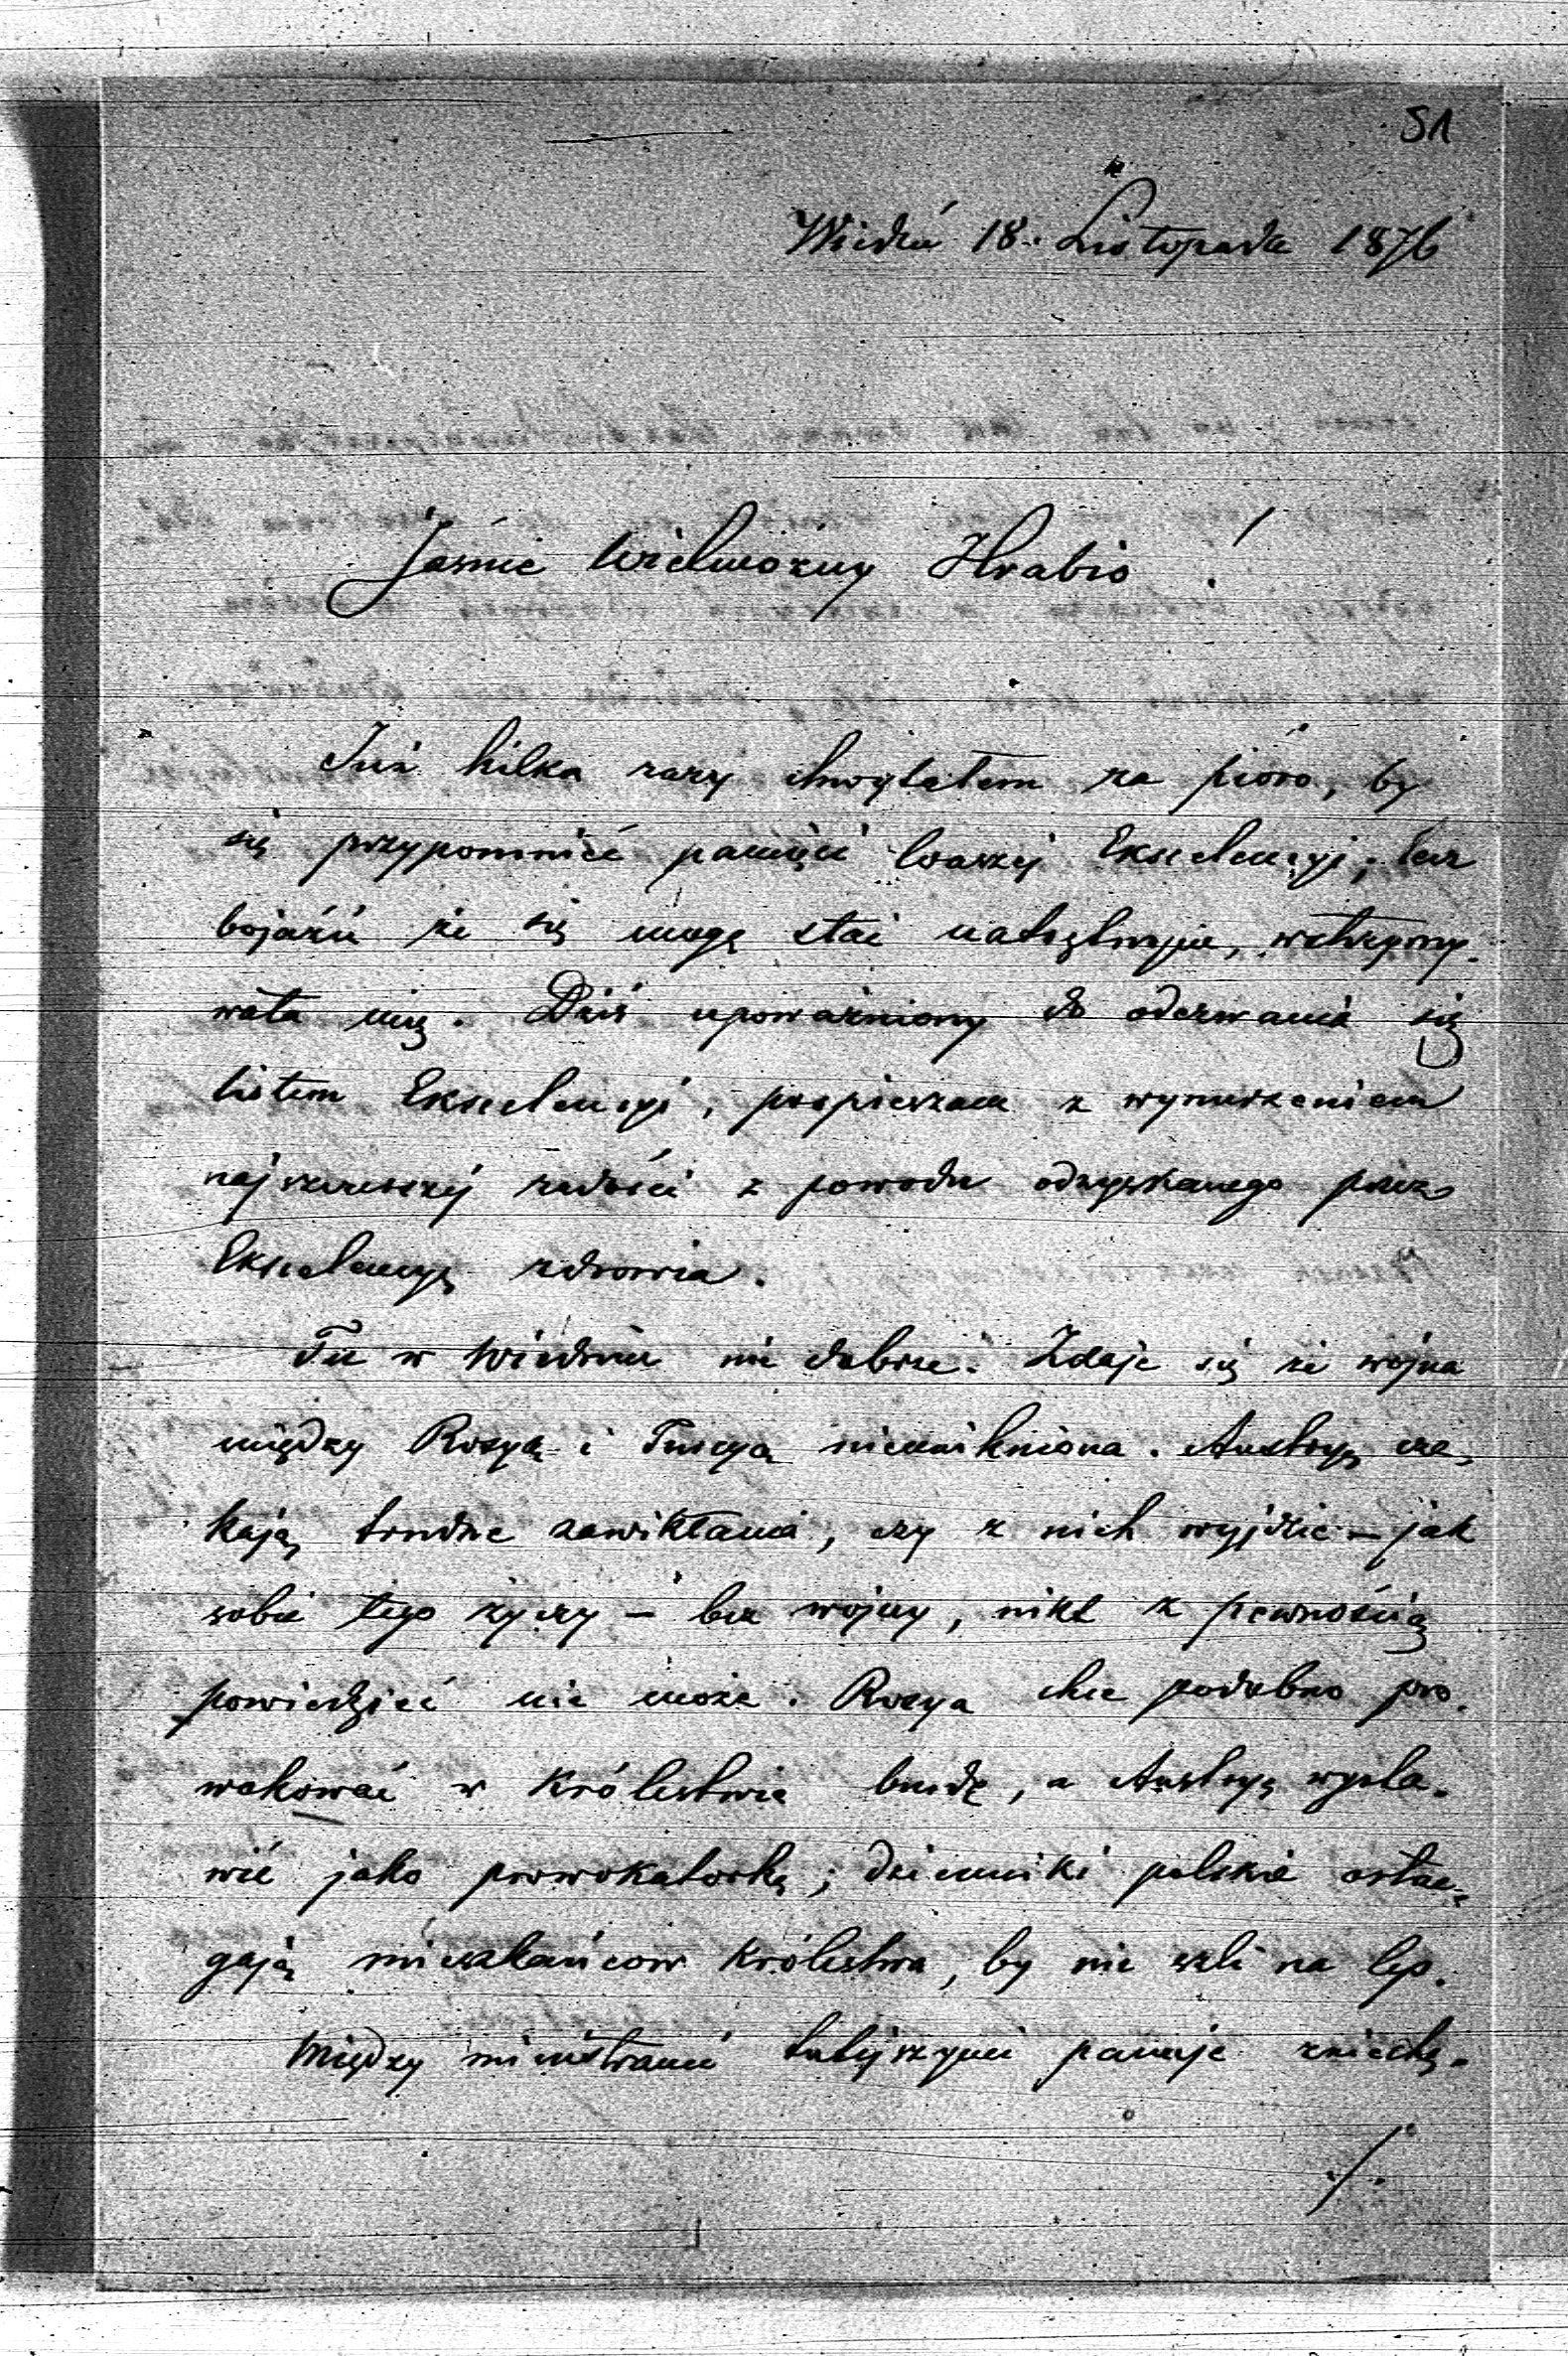 51
Wiedeń 18. Listopada 1876
Jaśnie Wielmożny Hrabio!
Już kilka razy chwytałem za pióro, by
się przypomnieć pamięci Waszej Ekscelencyi; lecz
bojaźń że się mogę stać natrętnym, wstrzymy-
wała mię. Dziś upoważniony do odezwania się
listem Ekscelencyi, pospieszam z wynurzeniem
najszczerszéj radości z powodu odzyskanego przez
Ekscelencyę zdrowia.
Tu w Wiedniu nie dobrze. Zdaje się że wojna
między Rosyą i Turcyą nieunikniona. Austryę cze-
kają trudne zawikłania, czy z nich wyjdzie – jak
sobie tego życzy – bez wojny, nikt z pewnością
powiedzieć nie może. Rosya chce podobno pro-
wokować w Królestwie burdę, a Austryę wysta-
wić jako prowokatorkę; dzienniki polskie ostrze-
gają mieszkańcow Królestwa, by nie szli na lep.
Między ministrami tutéjszymi panuje zniechę-
./.